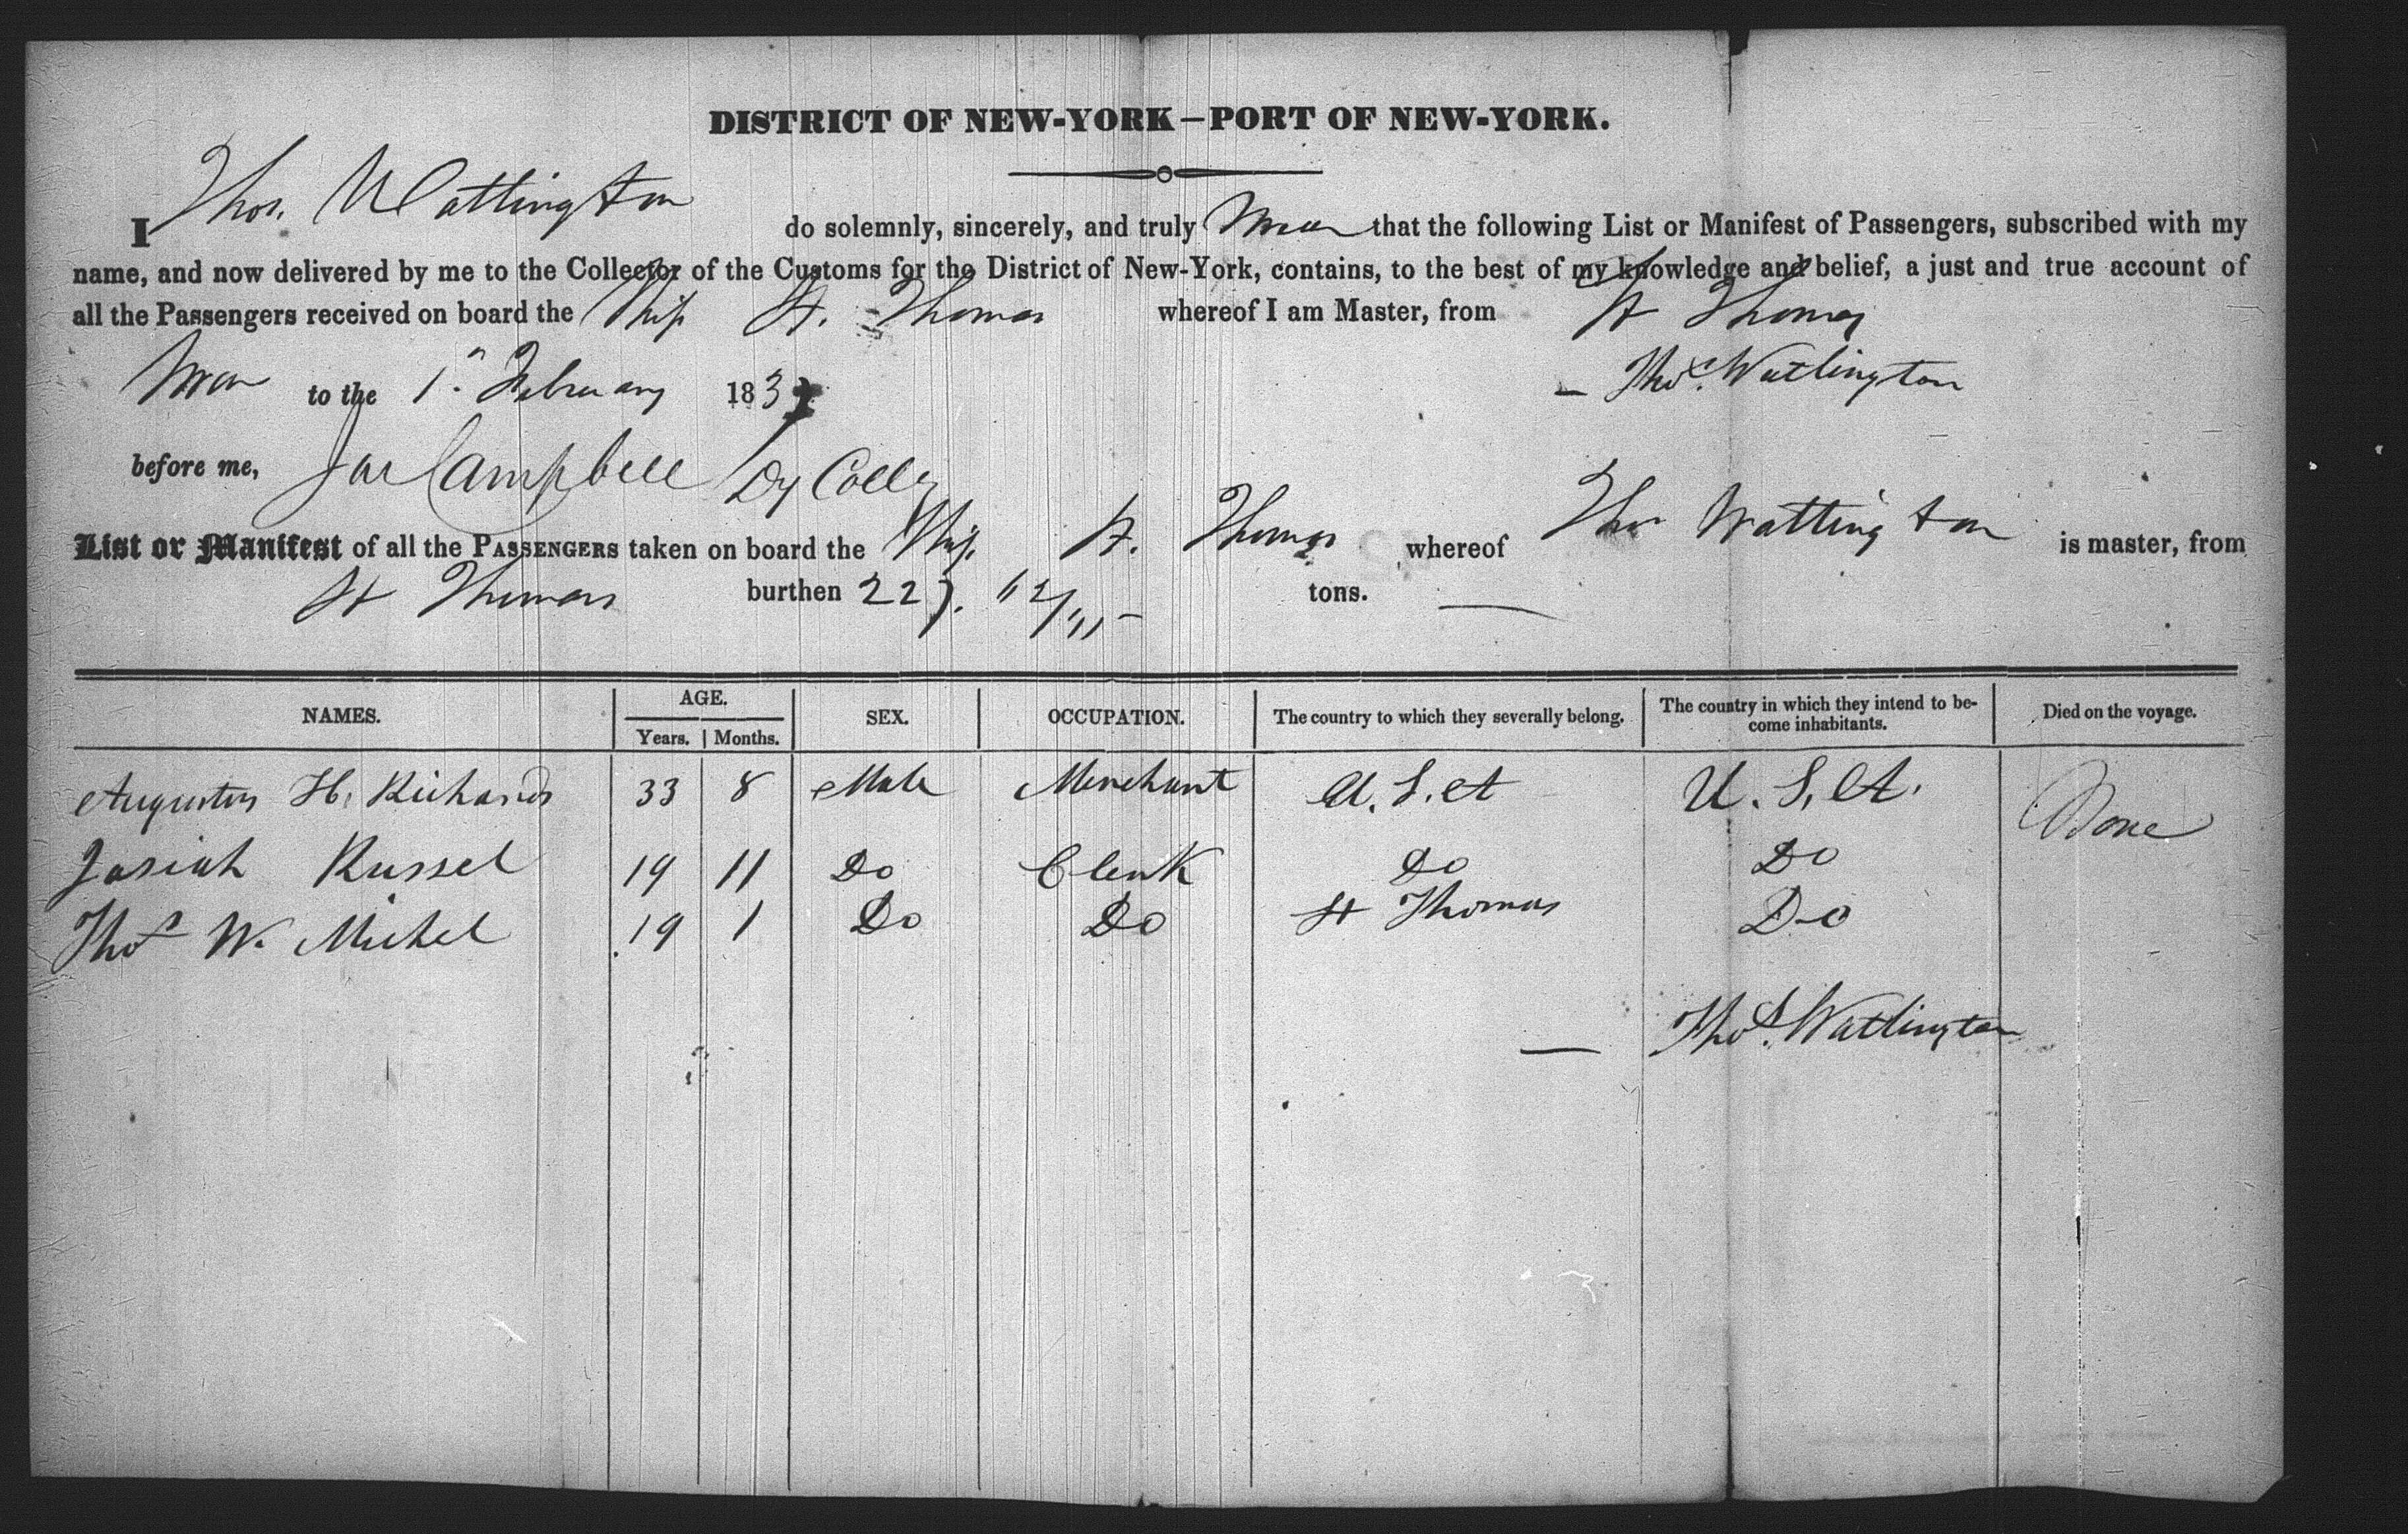 DISTRICT OF NEW-YORK—PORT OF NEW-YORK.
I Thos. Wattington do solemnly, sincerely, and truly swear that the following List or Manifest of Passengers, subscribed with my
name, and now delivered by me to the Collector of the Customs for the District of New-York, contains, to the best of my knowledge and belief, a just and true account of
all the Passengers received on board the Ship St. Thomas whereof I am Master, from St Thomas
Sworn to the 1st February 183
Thos. Watlington
before me, Jas Campbell Dy Coll
List or Manifest of all the PASSENGERS taken on board the Ship St. Thomas whereof Thos Wattington is master, from
St Thomas burthen 227. tons.
NAMES. AGE. SEX. OCCUPATION. The country to which they severally belong. The country in which they intend to be-come inhabitants. Died on the voyage.
Years. Months.
Augustus H. Richards 33 8 Male Merchant U. S. A U. S. A. None
Josiah Russel 19 11 Do Clerk Do Do
Thos W. Michel 19 1 Do Do St Thomas Do
Thos. Watlington